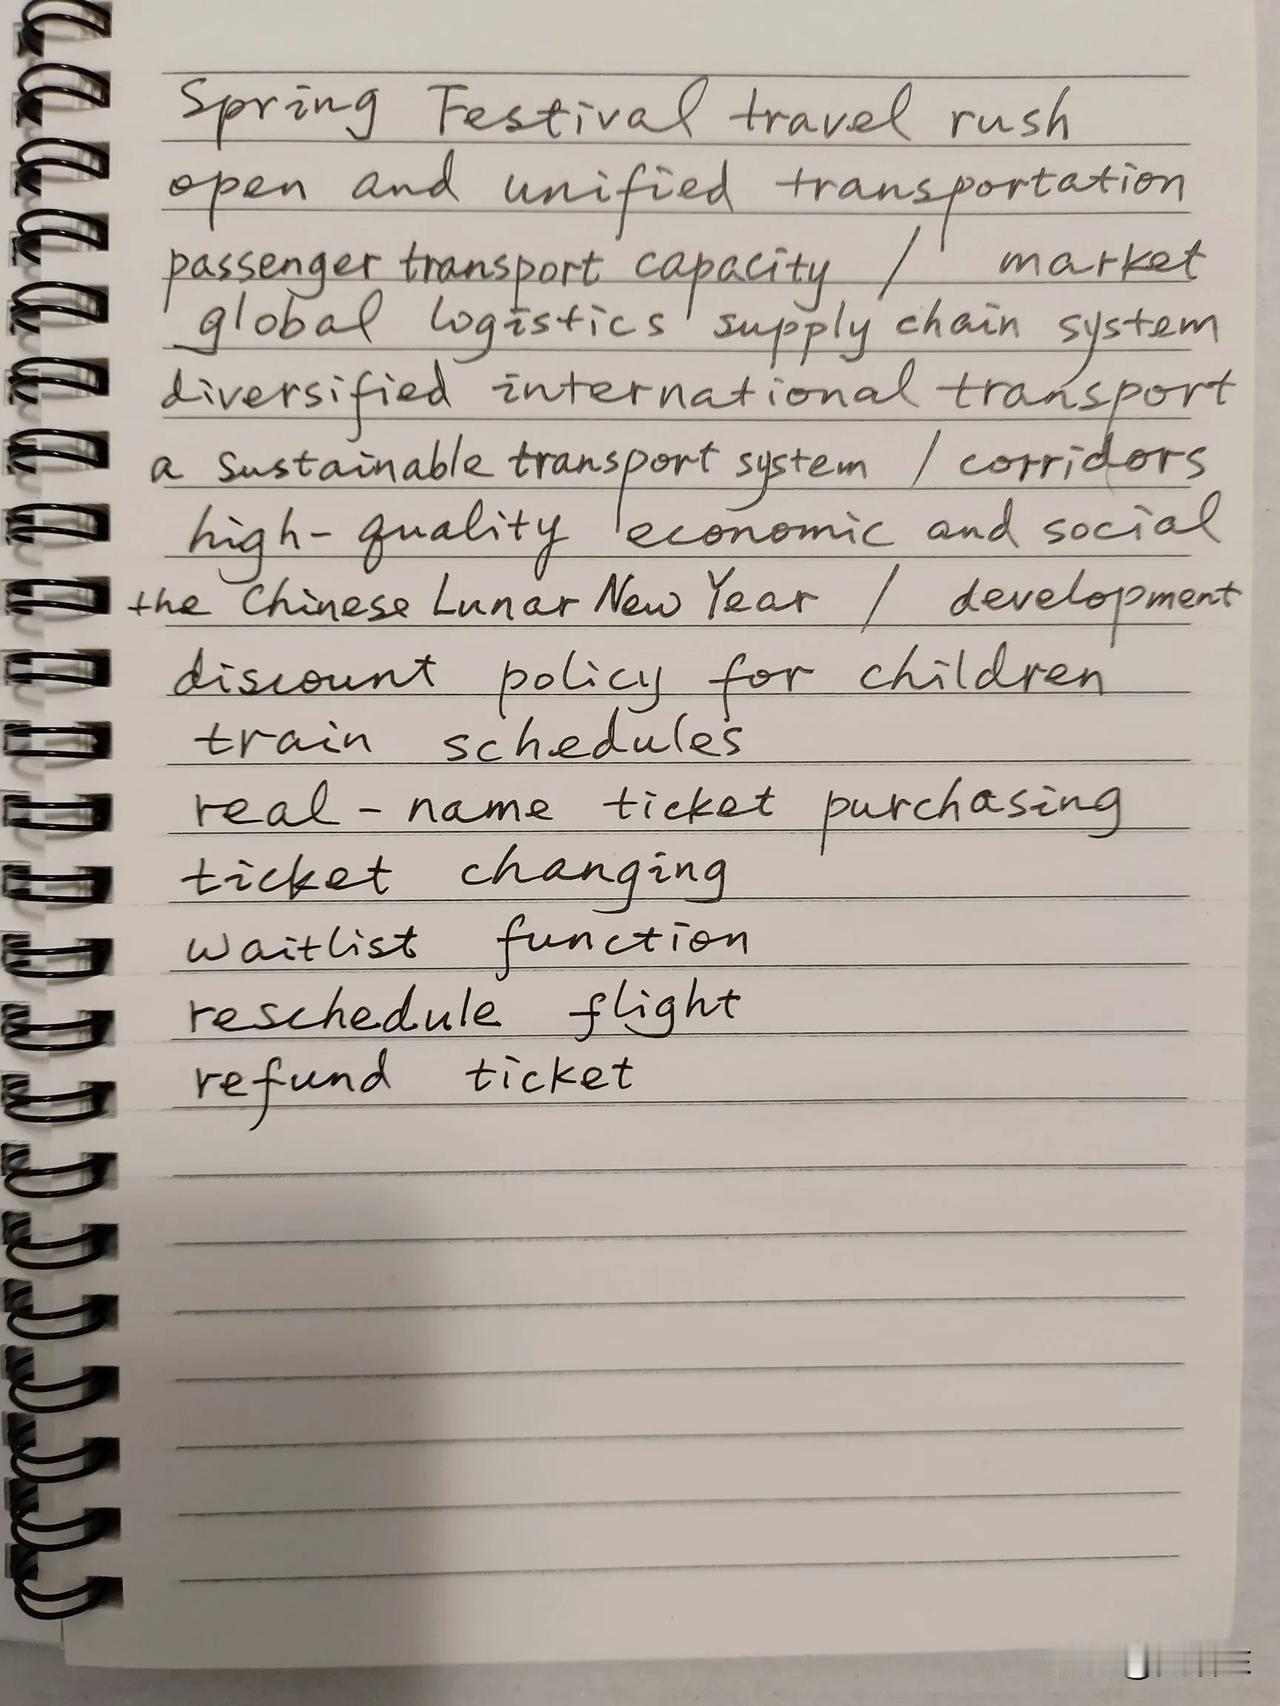 Spring Festival travel rush
open and unified transportation
passenger transport capacity / market
global logistics supply chain system
diversified international transport
a sustainable transport system / corridors
high-quality economic and social
the Chinese Lunar New Year / development
discount policy for children
train schedules
real-name ticket purchasing
ticket changing
waitlist function
reschedule flight
refund ticket